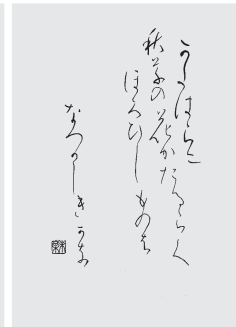 かたはらに
秋草の花かたるらく
ほろひしものは
なつかしきかな